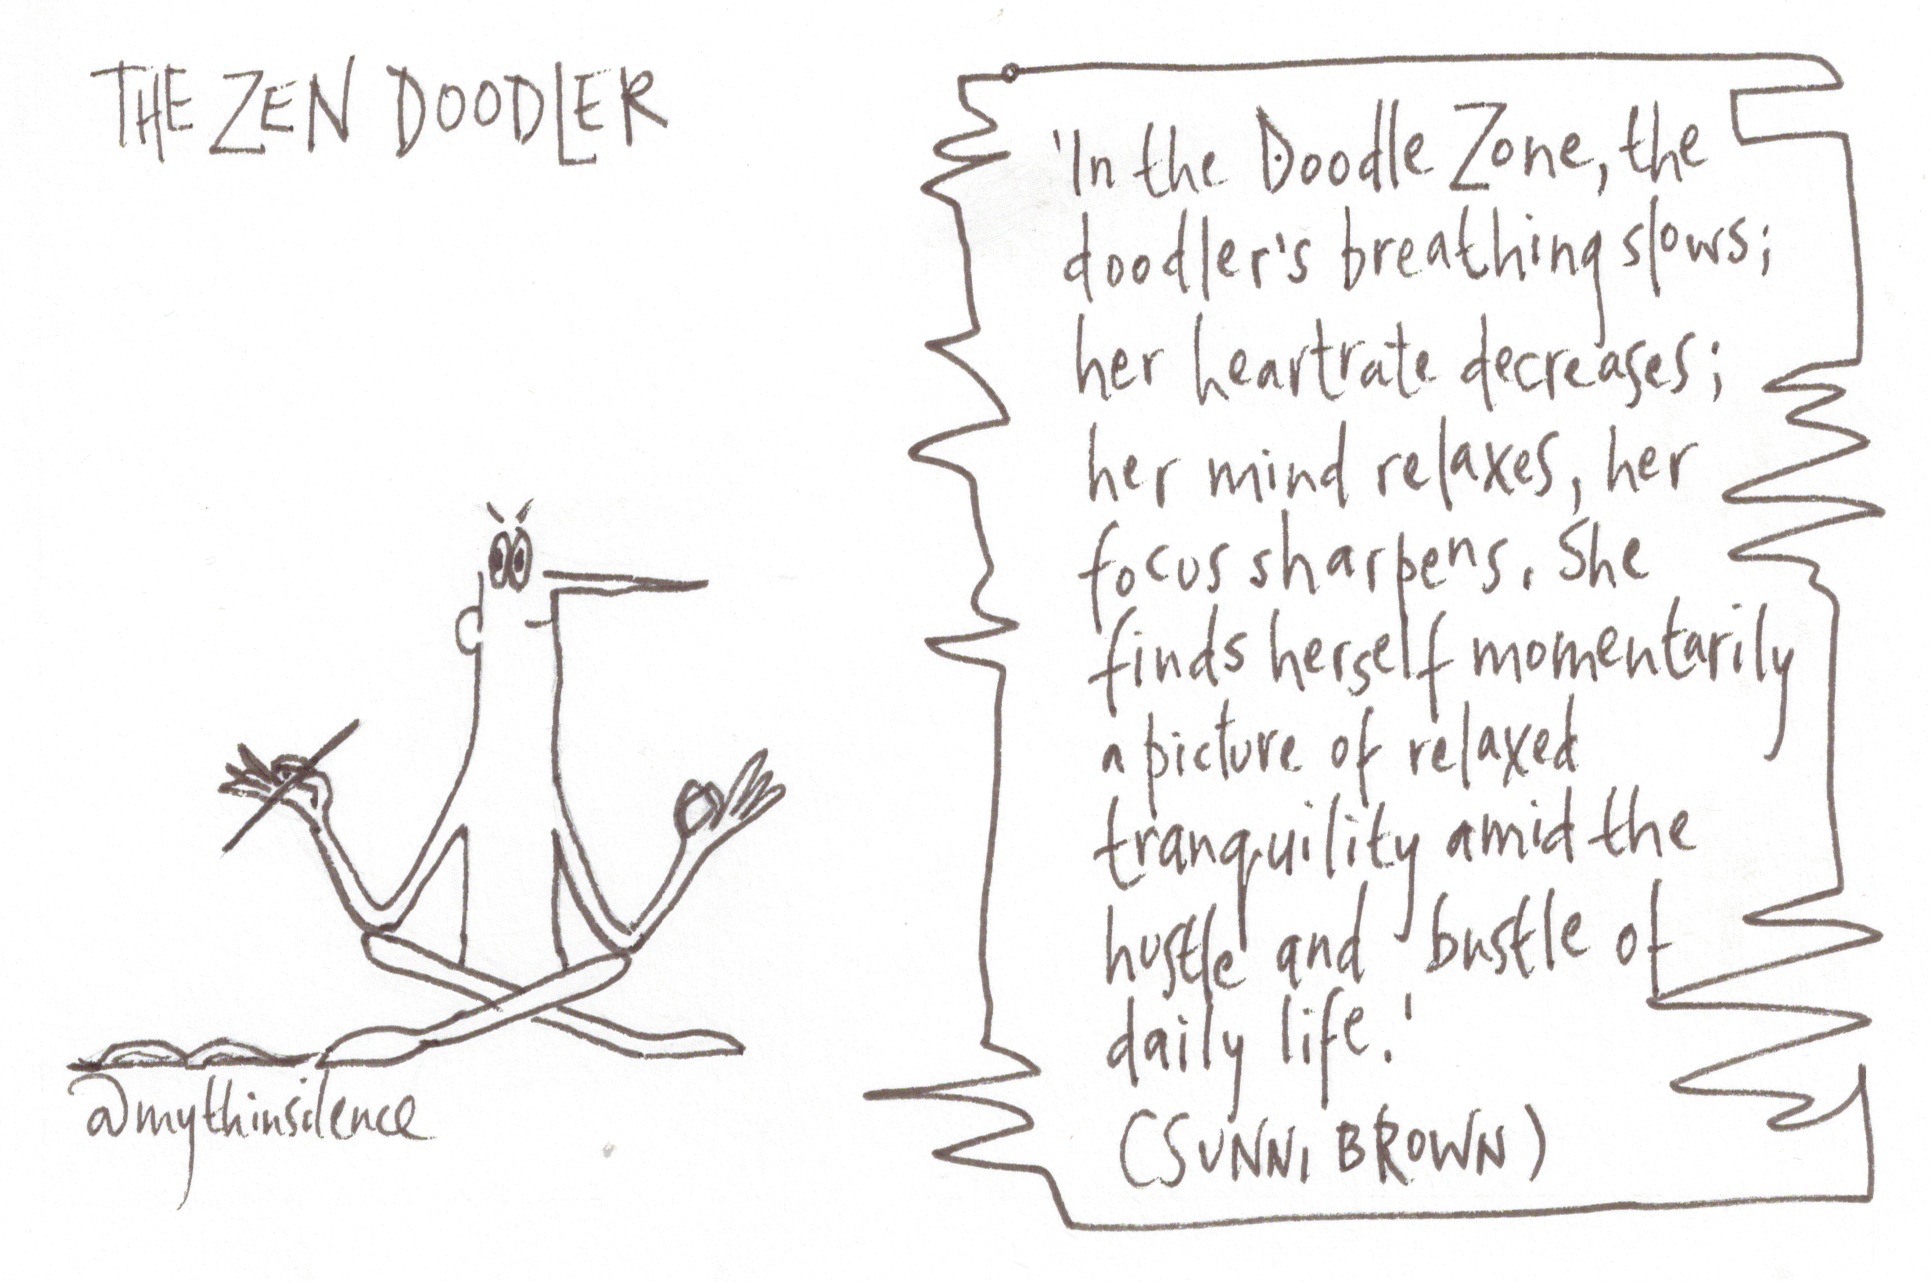 THE ZEN DOODLER
@mythinsilence
'In the Doodle Zone, the
doodler's breathing slows;
her heartrate decreases;
her mind relaxes, her
focus sharpens. She
finds herself momentarily
a picture of relaxed
tranquility amid the
hustle and bustle of
daily life.'
(SUNNI BROWN)